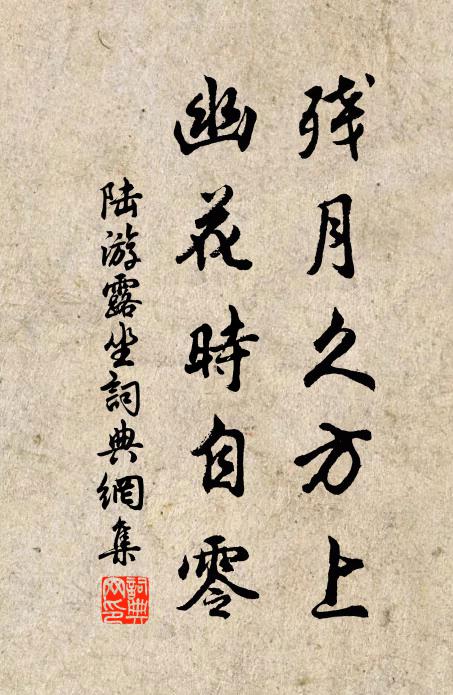 残月久方上
幽花時自零
陆游露坐詞典網集
詞典网印